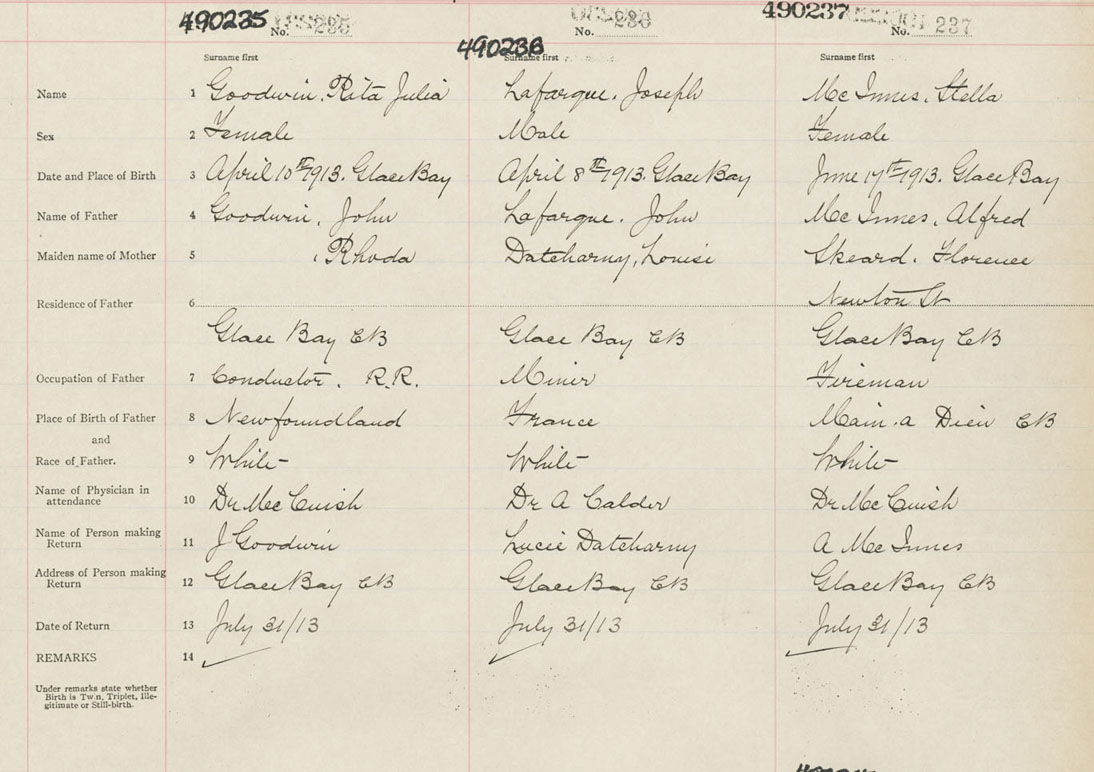 490235 No. 235
490236 No. 236
490237 No. 237
Surname first Surname first Surname first
Name 1 Goodwin, Rita Julia Lafargue, Joseph McInnes, Stella
Sex 2 Female Male Female
Date and Place of Birth 3 April 10th 1913. Glace Bay April 8th 1913. Glace Bay June 17th 1913. Glace Bay
Name of Father 4 Goodwin, John Lafargue. John McInnes, Alfred
Maiden name of Mother 5 , Rhoda Datcharny, Louise Skeard. Florence
Residence of Father 6 Newton St
Glace Bay CB Glace Bay CB Glace Bay CB
Occupation of Father 7 Conductor. R.R. Miner Fireman
Place of Birth of Father 8 Newfoundland France Main.a Dieu CB
and
Race of Father. 9 White White White
Name of Physician in
attendance 10 Dr McCuish Dr A Calder Dr McCuish
Name of Person making
Return 11 J Goodwin Lucie Datcharny A McInnes
Address of Person making
Return 12 Glace Bay CB Glace Bay CB Glace Bay CB
Date of Return 13 July 31/13 July 31/13 July 31/13
REMARKS 14
Under remarks state whether
Birth is Twn, Triplet, Ille-
gitimate or Still-birth.